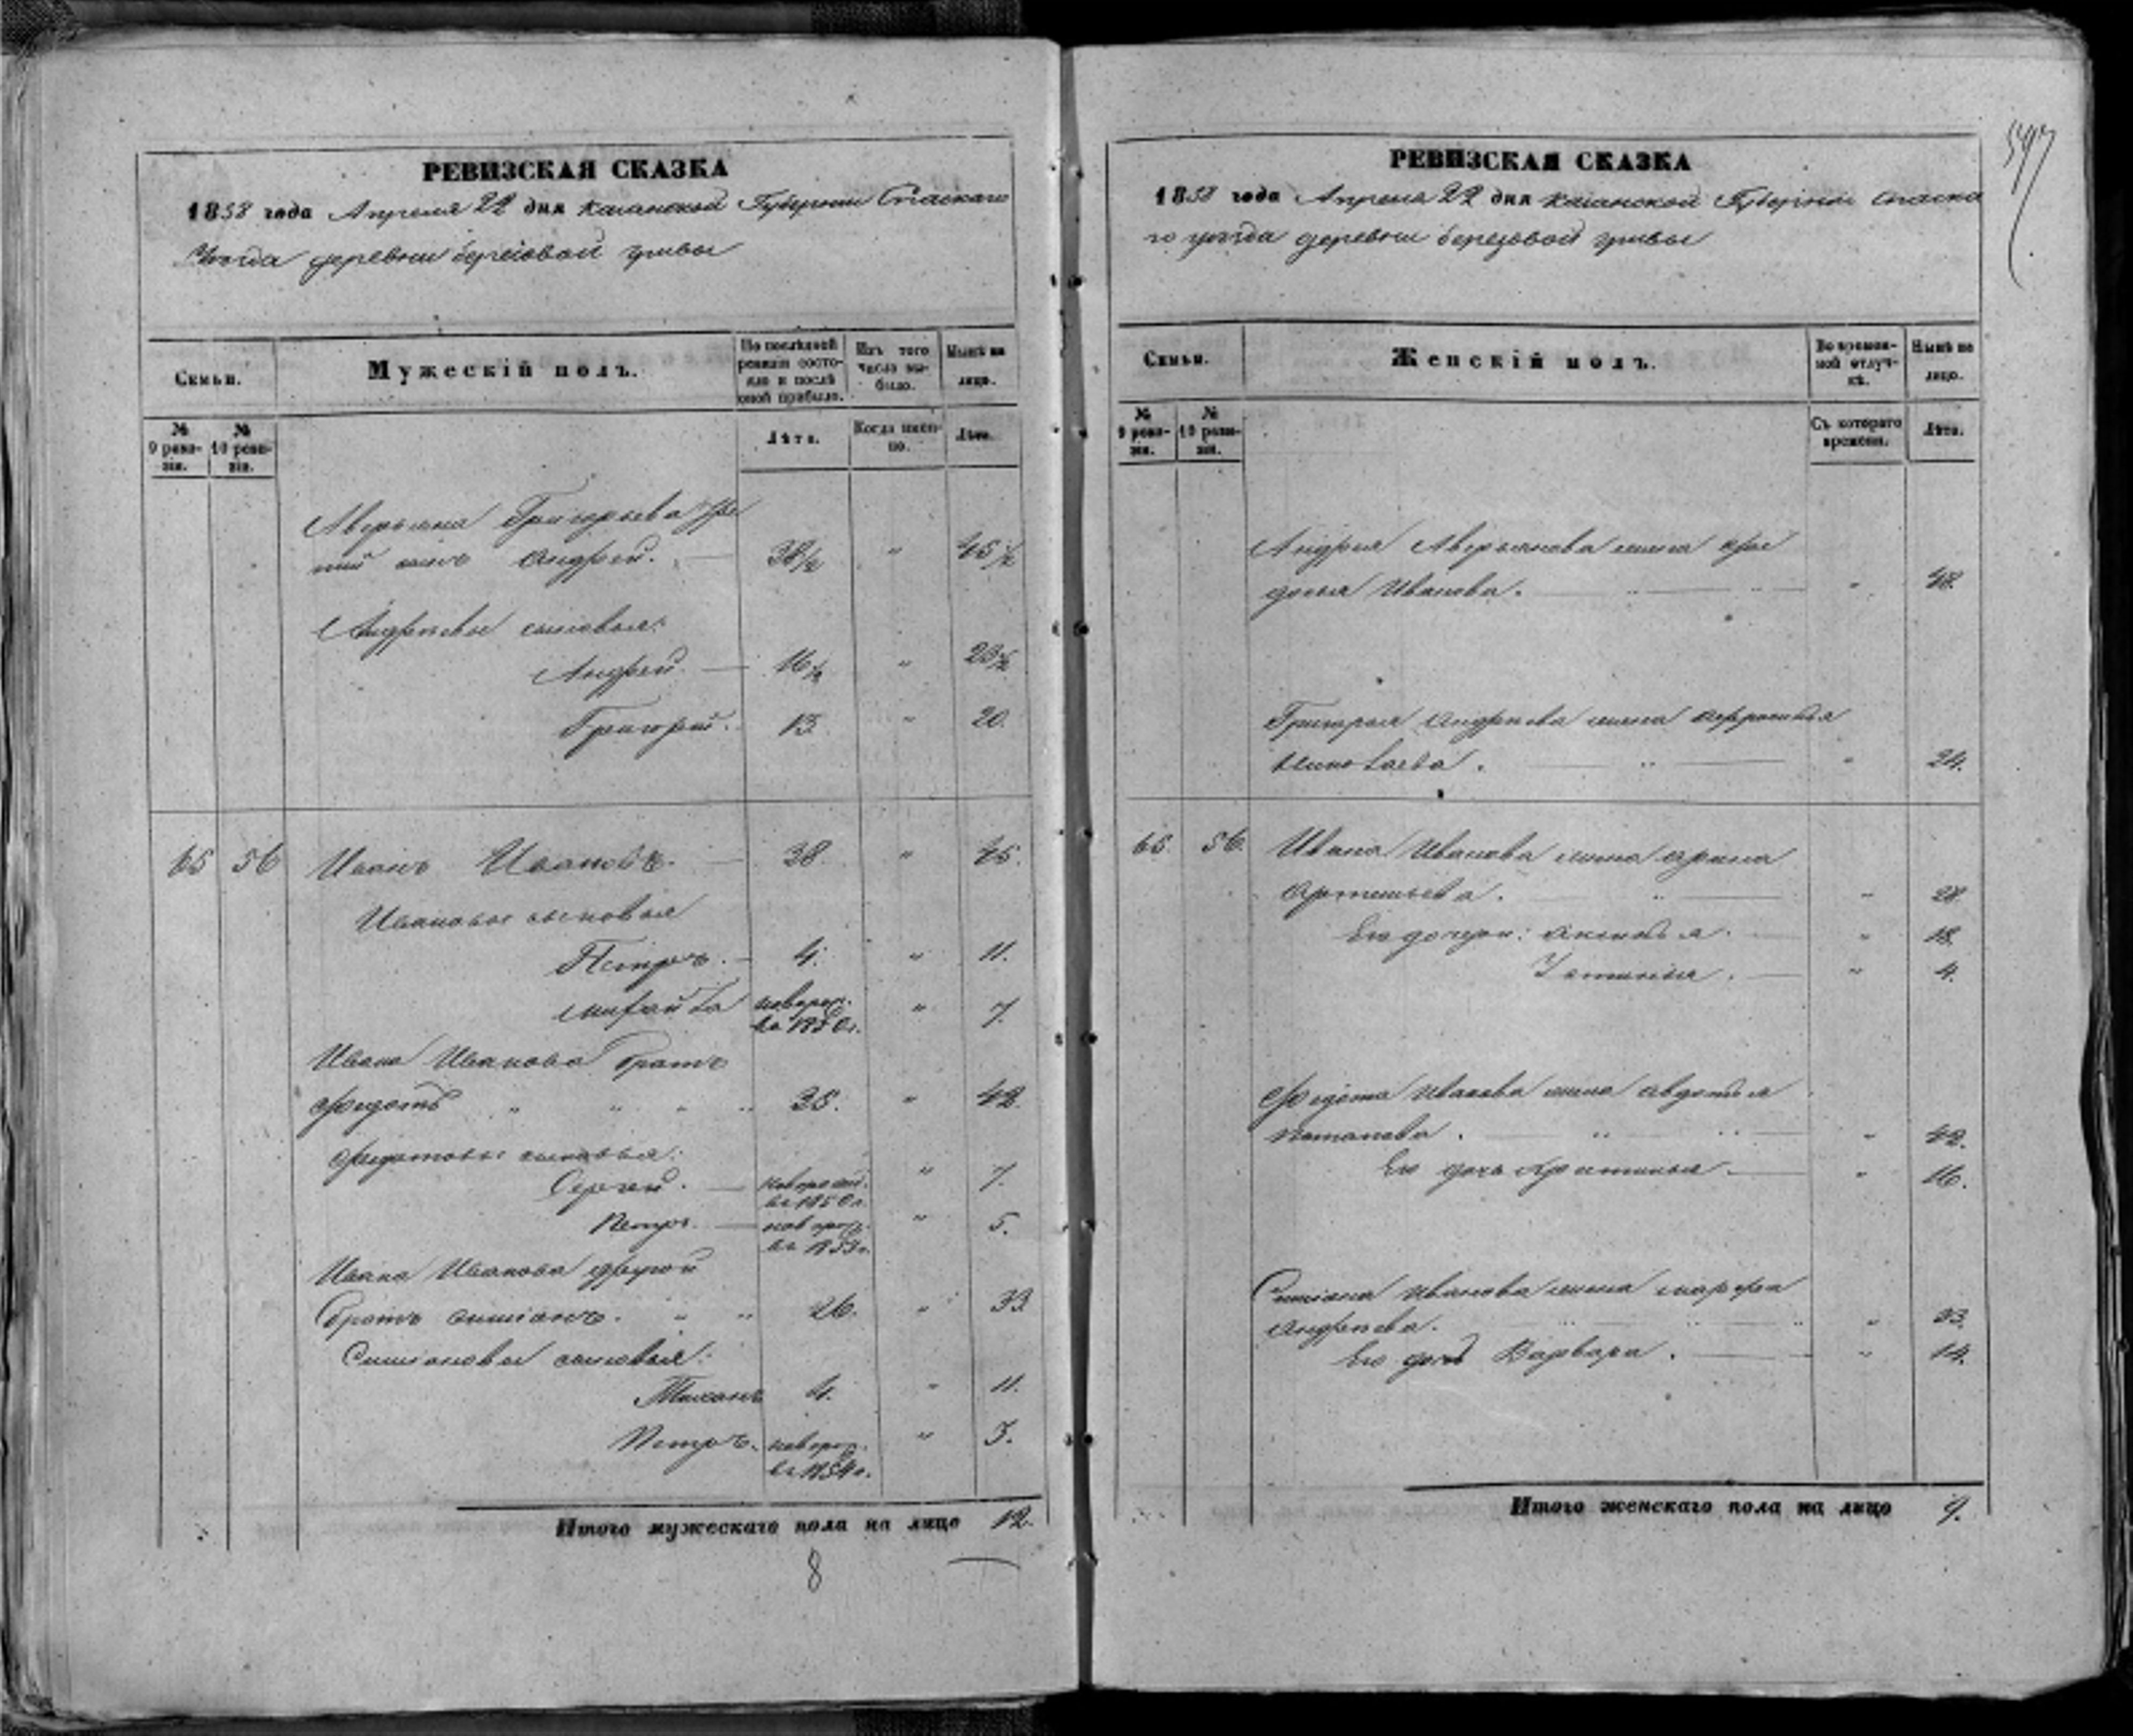 РЕВИЗСКАЯ СКАЗКА
1858 года Апреля 22 дня Казанской Губернии Спаскаго
Уезда деревни березовой гривы
Семьи.
Мужескій полъ.
По послѣдней ревизіи состояло и послѣ оной прибыло.
Изъ того числа выбыло.
Нынѣ на лицо.
№ 9 ревизіи.
№ 10 ревизіи.
Лѣта.
Когда именно.
Лѣта.
Аверьяна Григорьева
сынъ Андрей. 38½ " 45½
Андреевы сыновья:
Андрей. 16½ " 23½
Григорей. 13. " 20.
65 56 Иванъ Ивановъ. 38. " 45.
Ивановы сыновья
Петръ. 4. " 11.
Михайла новорож. въ 1850г. " 7.
Ивана Иванова братъ
Федотъ " " " " 35. " 42.
Федотовы сыновья:
Сергей. новорожд. въ 1850г. " 7.
Петръ. новорож. въ 1853г. " 5.
Ивана Иванова другой
братъ Симіонъ. " " 26. " 33.
Симіоновы сыновья:
4. " 11.
Петръ. новорож. въ 1854г. " 3.
Итого мужескаго пола на лицо 12.
8
597
РЕВИЗСКАЯ СКАЗКА
1858 года Апреля 22 дня Казанской Губерніи Спаска
го уезда деревни березовой гривы
Семьи.
Женскій полъ.
Во временной отлучкѣ.
Нынѣ на лицо.
№ 9 ревизіи.
№ 10 ревизіи.
Съ котораго времени.
Лѣта.
Андрея Аверьянова жена Фе
досья Иванова. " 48.
Григорья Андреева жена
Николаева. " 24.
65. 56. Ивана Иванова жена Арина
Артемьева. " 28.
Его дочери: Аксинья. " 18.
" 4.
Федота Иванова жена Авдотья
Потапова. " 42.
Его дочь " 16.
Симіона Иванова жена Марфа
Андреева. " 33.
Его дочь Варвара. " 14.
Итого женскаго пола на лицо 9.